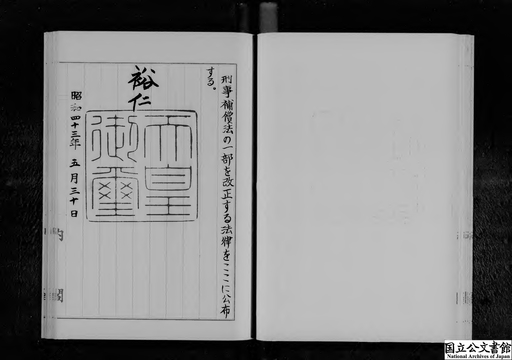 刑事補償法の一部を改正する法律をここに公布
する。
裕仁
天皇
御璽
昭和四十三年五月三十日
内閣
国立公文書館
National Archives of Japan